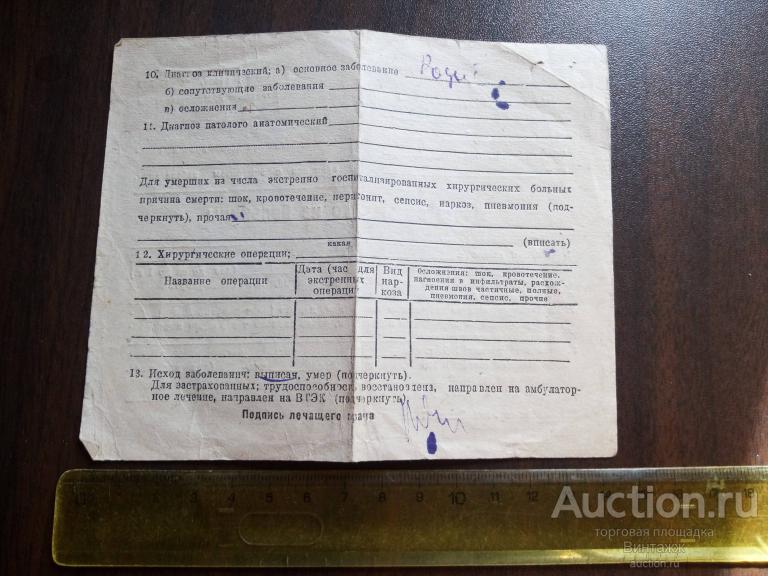 10. Диагноз клинический; а) основное заболевание Роды
б) сопутствующие заболевания
в) осложнения
11. Диагноз патолого анатомический
Для умерших из числа экстренно госпитализированных хирургических больных
причина смерти: шок, кровотечение, перитонит, сепсис, наркоз, пневмония (под-
черкнуть), прочая
какая (вписать)
12. Хирургические операции;
Название операции
Дата (час для
экстренных
операций
Вид
нар-
коза
Осложнения: шок, кровотечение.
нагноения в инфильтраты, расхож-
дения швов частичные, полные,
пневмония, сепсис, прочие
13. Исход заболевания: выписан, умер (подчеркнуть).
Для застрахованных; трудоспособность восстановлена, направлен на амбулатор-
ное лечение, направлен на ВТЭК (подчеркнуть)
Подпись лечащего врача
4 5 6 7 8 9 10 11 12
Auction.ru
торговая площадка
Винтажж
auction.ru